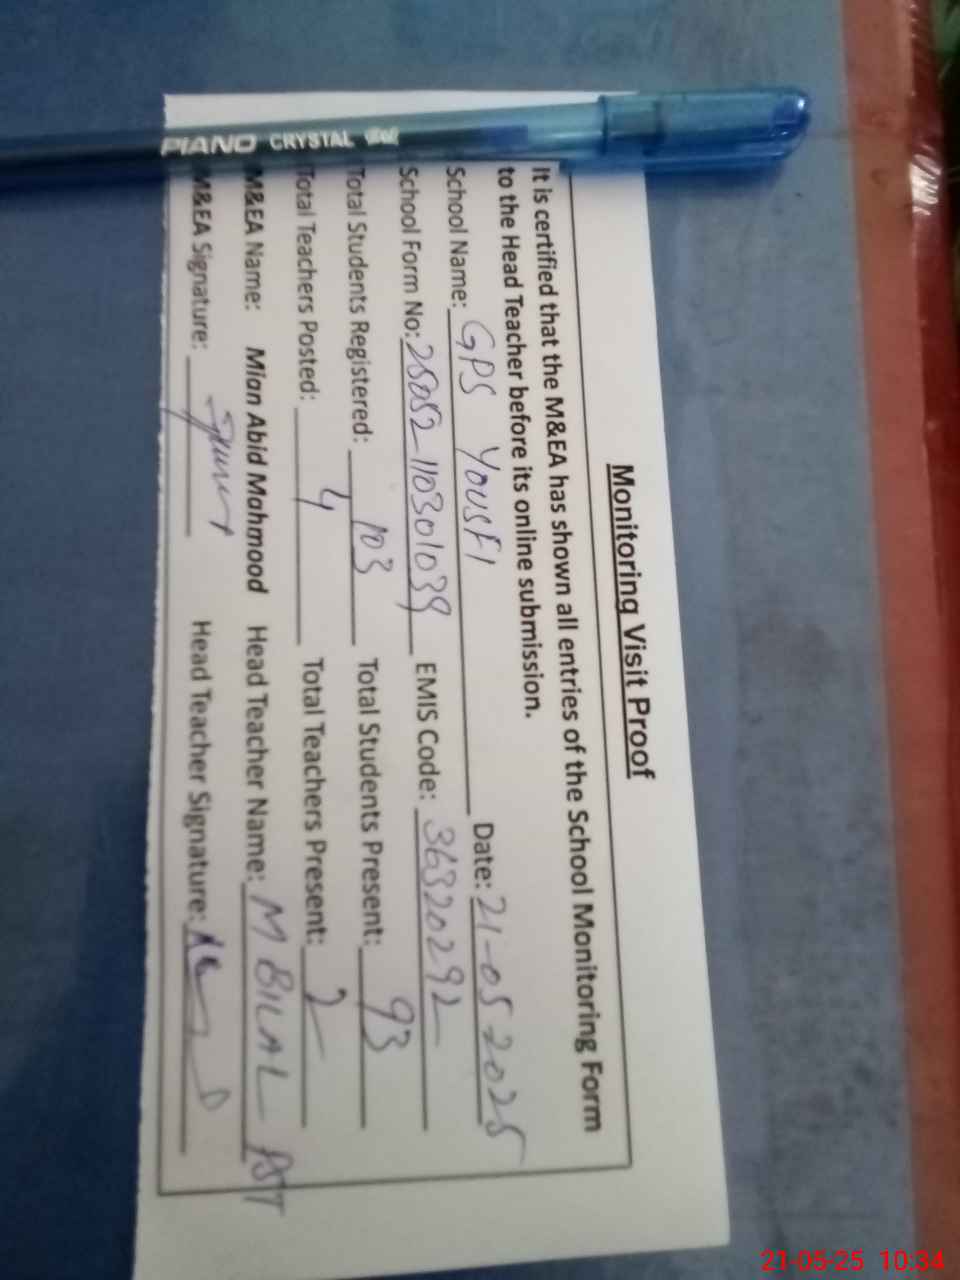 Monitoring Visit Proof
It is certified that the M&EA has shown all entries of the School Monitoring Form
to the Head Teacher before its online submission.
School Name: GPS YOUSFI Date: 21-05-2025
School Form No: 25052-110301039 EMIS Code: 36320292
Total Students Registered: 103 Total Students Present: 93
Total Teachers Posted: 4 Total Teachers Present: 2
M&EA Name: Mian Abid Mahmood Head Teacher Name: M BILAL PST
M&EA Signature: Head Teacher Signature:
PIANO CRYSTAL
21-05-25 10:34